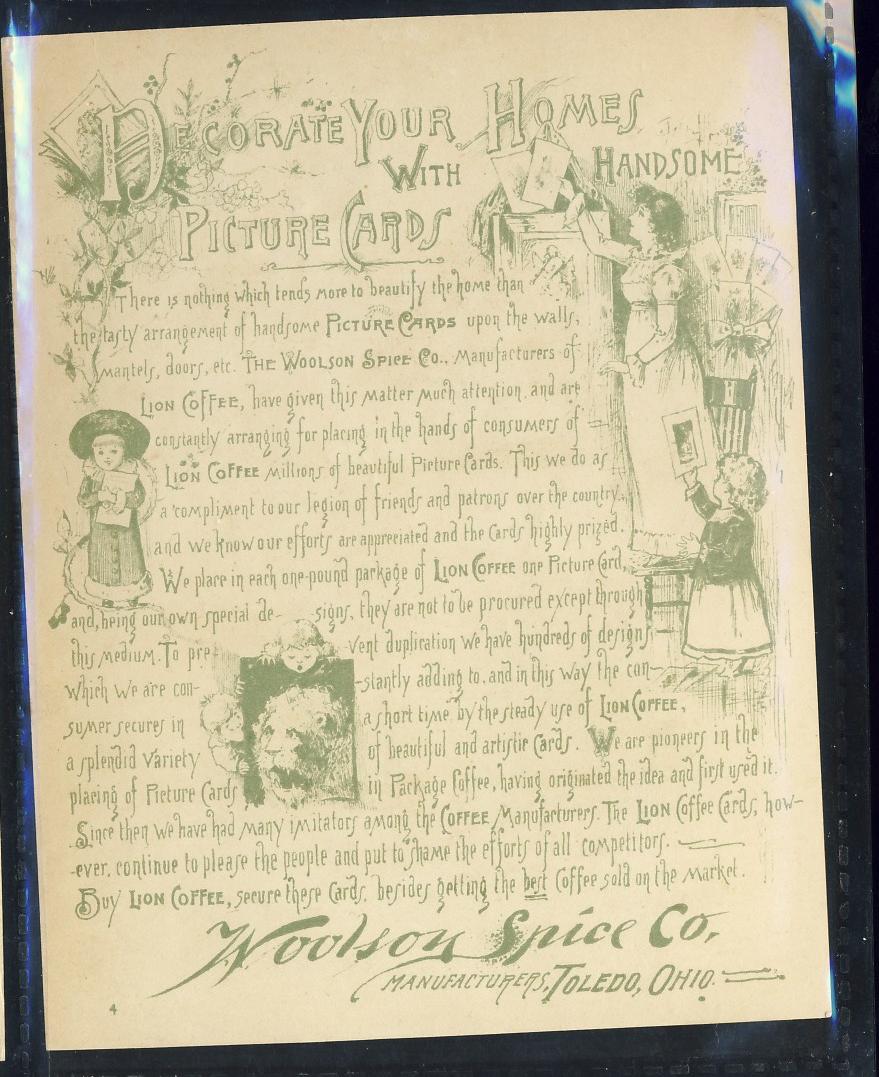 DECORATE YOUR HOMES
WITH HANDSOME
PICTURE CARDS
There is nothing which tends more to beautify the home than
the tasty arrangement of handsome PICTURE CARDS upon the walls,
mantels, doors, etc. THE WOOLSON SPICE CO., Manufacturers of
LION COFFEE, have given this matter much attention, and are
constantly arranging for placing in the hands of consumers of
LION COFFEE millions of beautiful Picture Cards. This we do as
a compliment to our legion of friends and patrons over the country,
and we know our efforts are appreciated and the Cards highly prized.
We place in each one-pound package of LION COFFEE one Picture Card,
and, being our own special de- signs, they are not to be procured except through
this medium. To pre- vent duplication we have hundreds of designs
which we are con- stantly adding to, and in this way the con-
sumer secures in a short time, by the steady use of LION COFFEE,
a splendid variety of beautiful and artistic Cards. We are pioneers in the
placing of Picture Cards in Package Coffee, having originated the idea and first used it.
Since then we have had many imitators among the COFFEE Manufacturers. The LION Coffee Cards, how-
ever, continue to please the people and put to shame the efforts of all competitors.
Buy LION COFFEE, secure these Cards, besides getting the best Coffee sold on the market.
Woolson Spice Co.,
MANUFACTURERS, TOLEDO, OHIO.
4